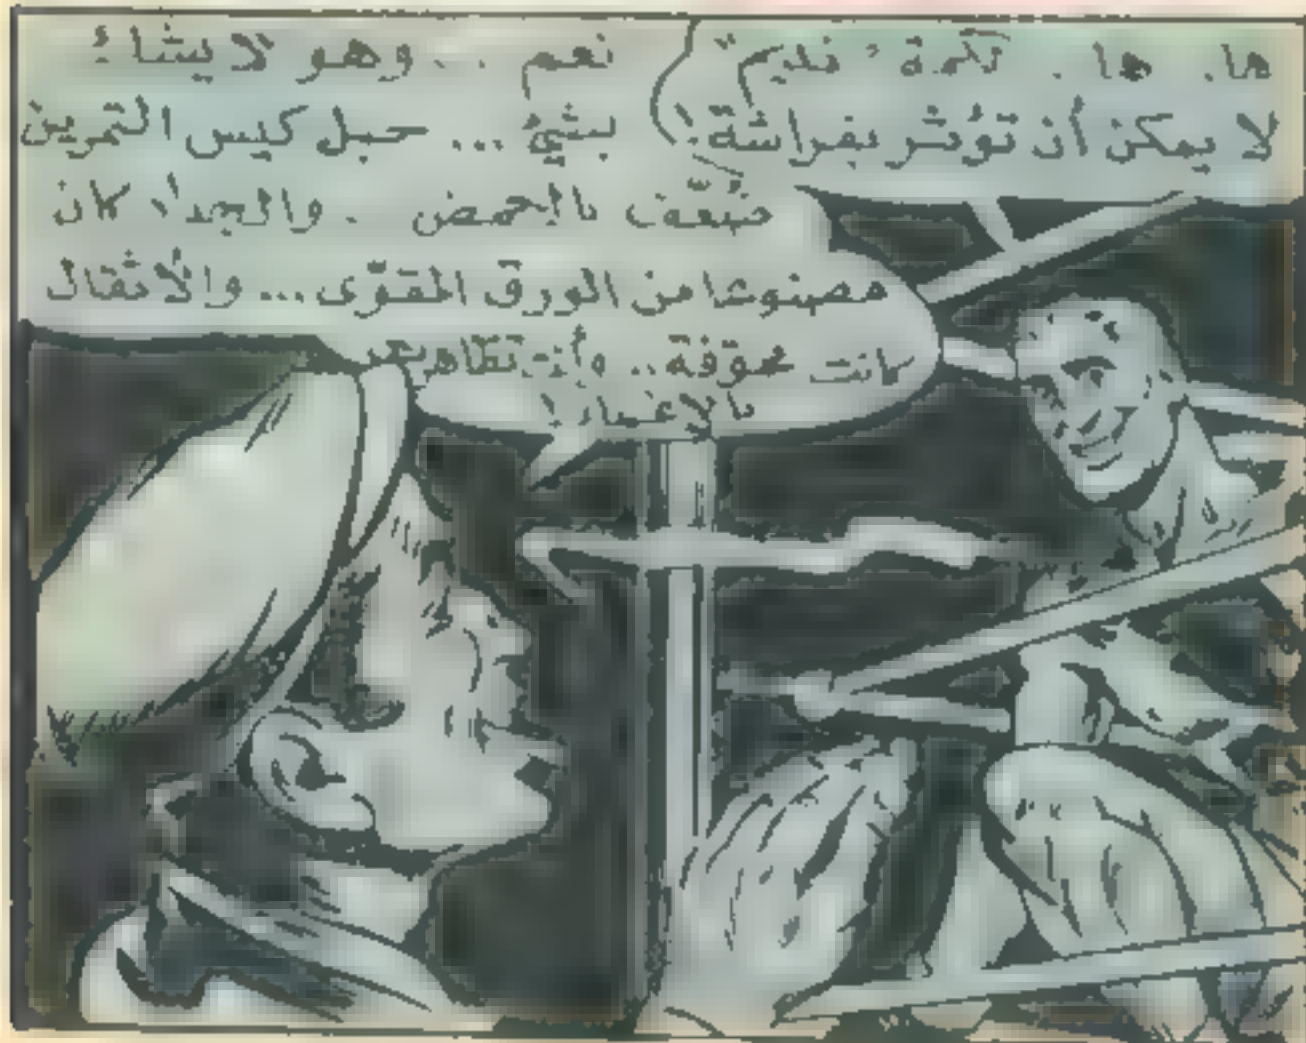 ها. ها. لكمة "فليم"
لا يمكن أن تؤثر بفراشة!
نعم .. وهو لا يشك
بشيء ... حبل كيس التمرين
ضُعّف بالحمض .. والجدار كان
مصنوعا من الورق المقوّى ... والأثقال
كانت مجوّفة .. وأنت تظاهرت
بالاغماء!